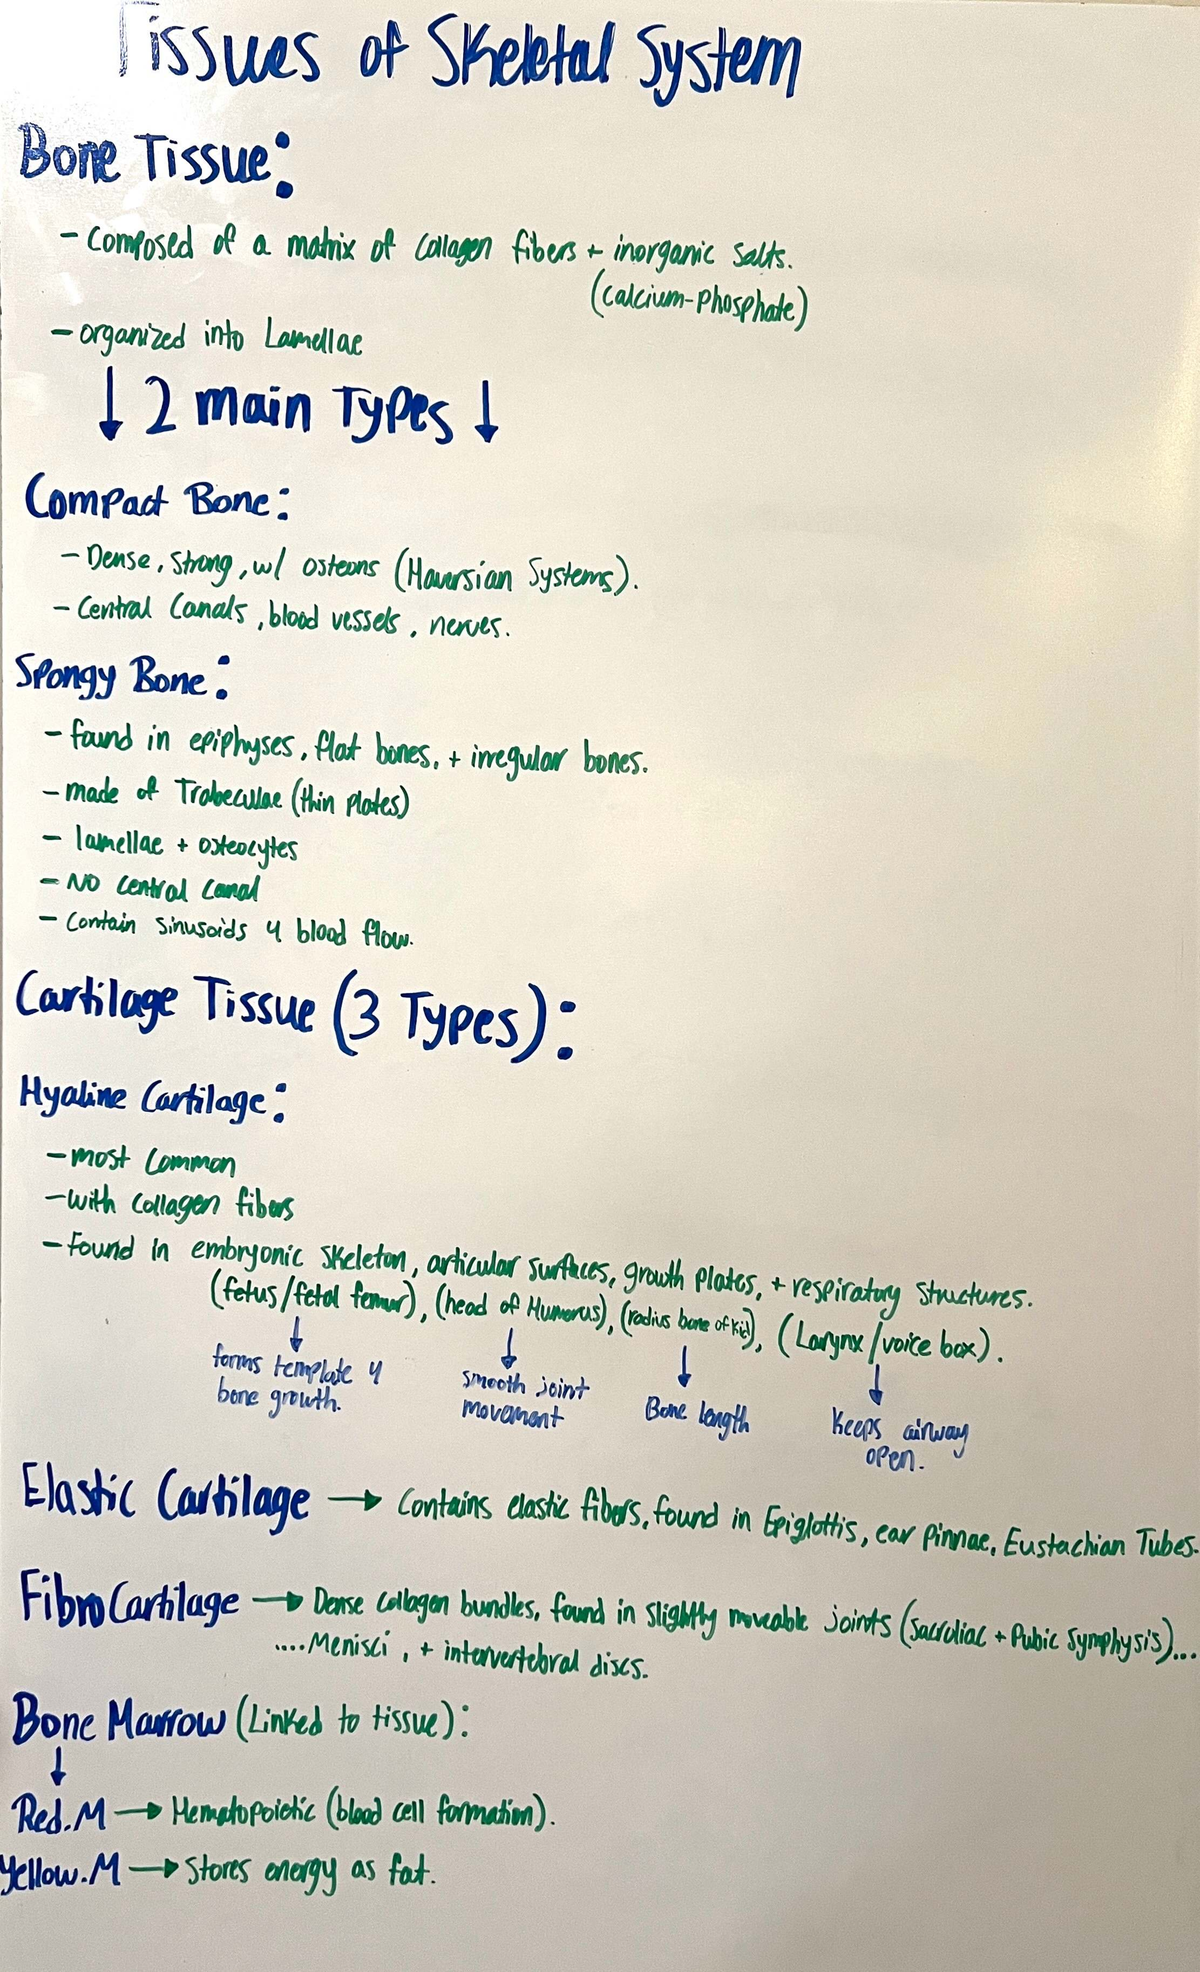 Tissues of Skeletal System
Bone Tissue:
- Composed of a matrix of collagen fibers + inorganic salts.
(calcium-Phosphate)
- organized into Lamellae
↓ 2 main Types ↓
Compact Bone:
- Dense, strong, w/ osteons (Haversian Systems).
- Central Canals, blood vessels, nerves.
Spongy Bone:
- found in epiphyses, flat bones, + irregular bones.
- made of Trabeculae (thin plates)
- lamellae + osteocytes
- NO central canal
- Contain Sinusoids 4 blood flow.
Cartilage Tissue (3 Types):
Hyaline Cartilage:
- most common
- with collagen fibers
- Found in embryonic skeleton, articular surfaces, growth plates, + respiratory structures.
(fetus/fetal femur), (head of Humerus), (radius bone of kid), (Larynx/voice box).
↓ ↓ ↓ ↓
forms template 4 smooth joint Bone length Keeps airway
bone growth. movement open.
Elastic Cartilage → Contains elastic fibers, found in Epiglottis, ear pinnae, Eustachian Tubes.
FibroCartilage → Dense collagen bundles, found in slightly moveable joints (sacroiliac + Pubic Symphysis)...
....Menisci, + intervertebral discs.
Bone Marrow (Linked to tissue):
↓
Red.M → Hematopoietic (blood cell formation).
Yellow.M → Stores energy as fat.